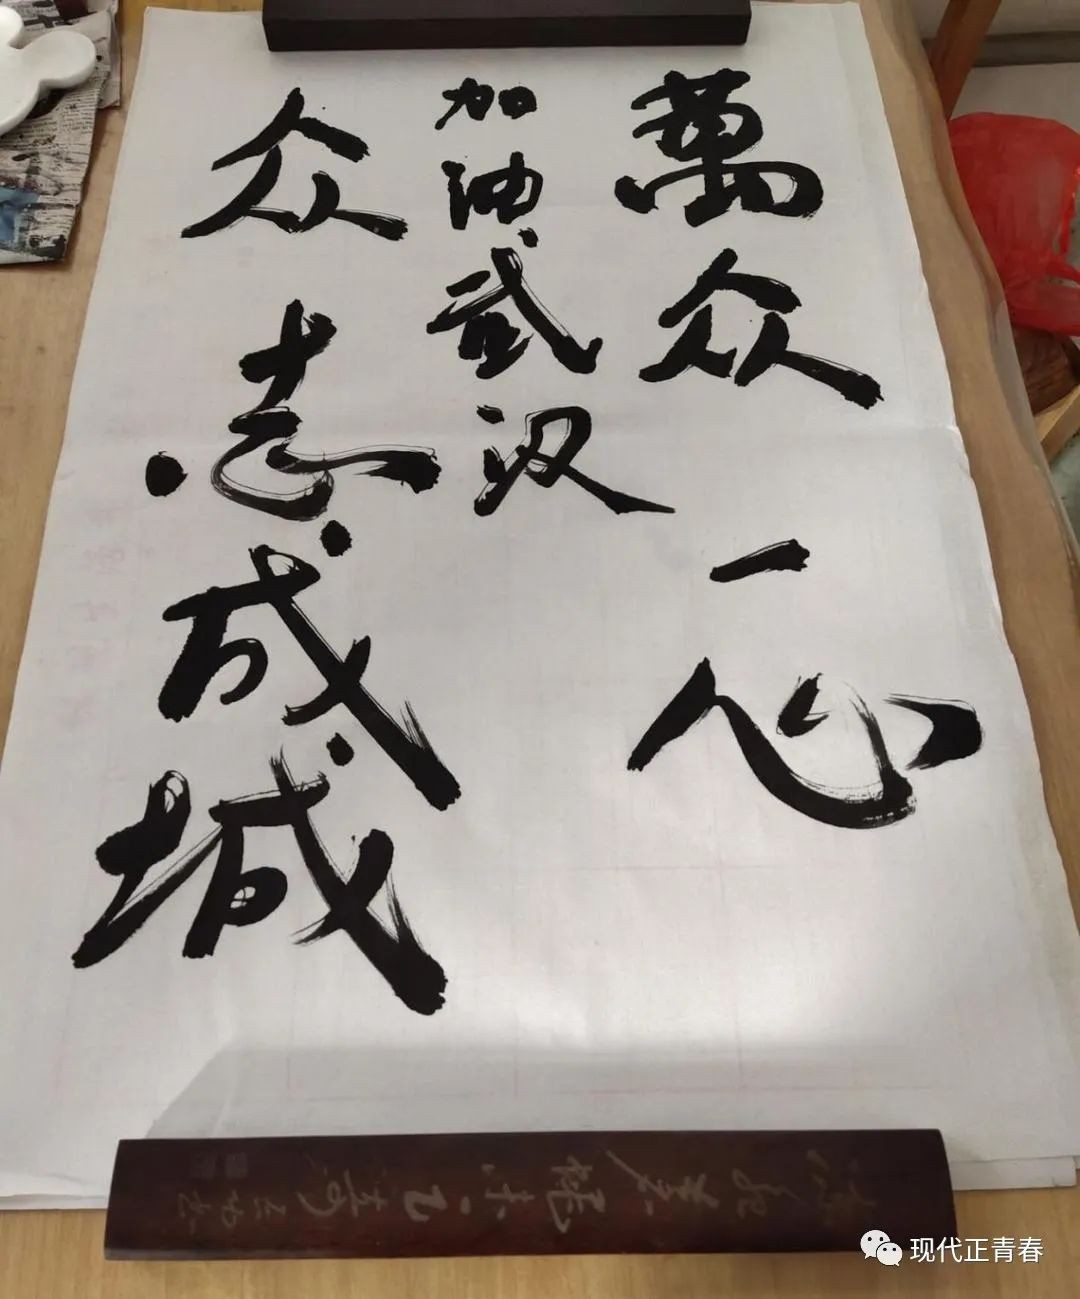 萬众一心
加油武汉
众志成城
现代正青春